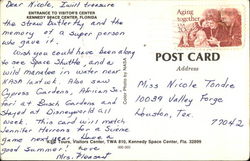 Dear Nicole, I will treasure
ENTRANCE TO VISITORS CENTER
KENNEDY SPACE CENTER, FLORIDA
the straw butterfly and the
memory of a super person
who gave it.
Wish you could have been along
to see Space Shuttle, and a
wild manatee in water near
NASA launch. Also saw
Cypress Gardens, African Sa-
fari at Busch Gardens and
Stayed at Disneyworld all
Week. This card will match
Jennifer Herrons for a Suave
game next. Have a
good Summer! here
Mrs. Pleasant
Aging together
USA
POST CARD
Address
Miss Nicole Tondre
10039 Valley Forge
Houston, Tex.
77042
Tours, Visitors Center, TWA 810, Kennedy Space Center, Fla. 32899